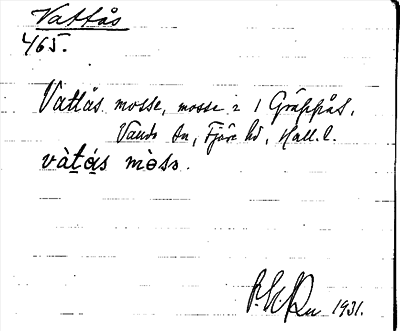 Vattås
465.
Vattås mosse, mosse i Gräppås,
Vands sn, Fjäre hd, Hall. l.
vàtás mòss.
1931.